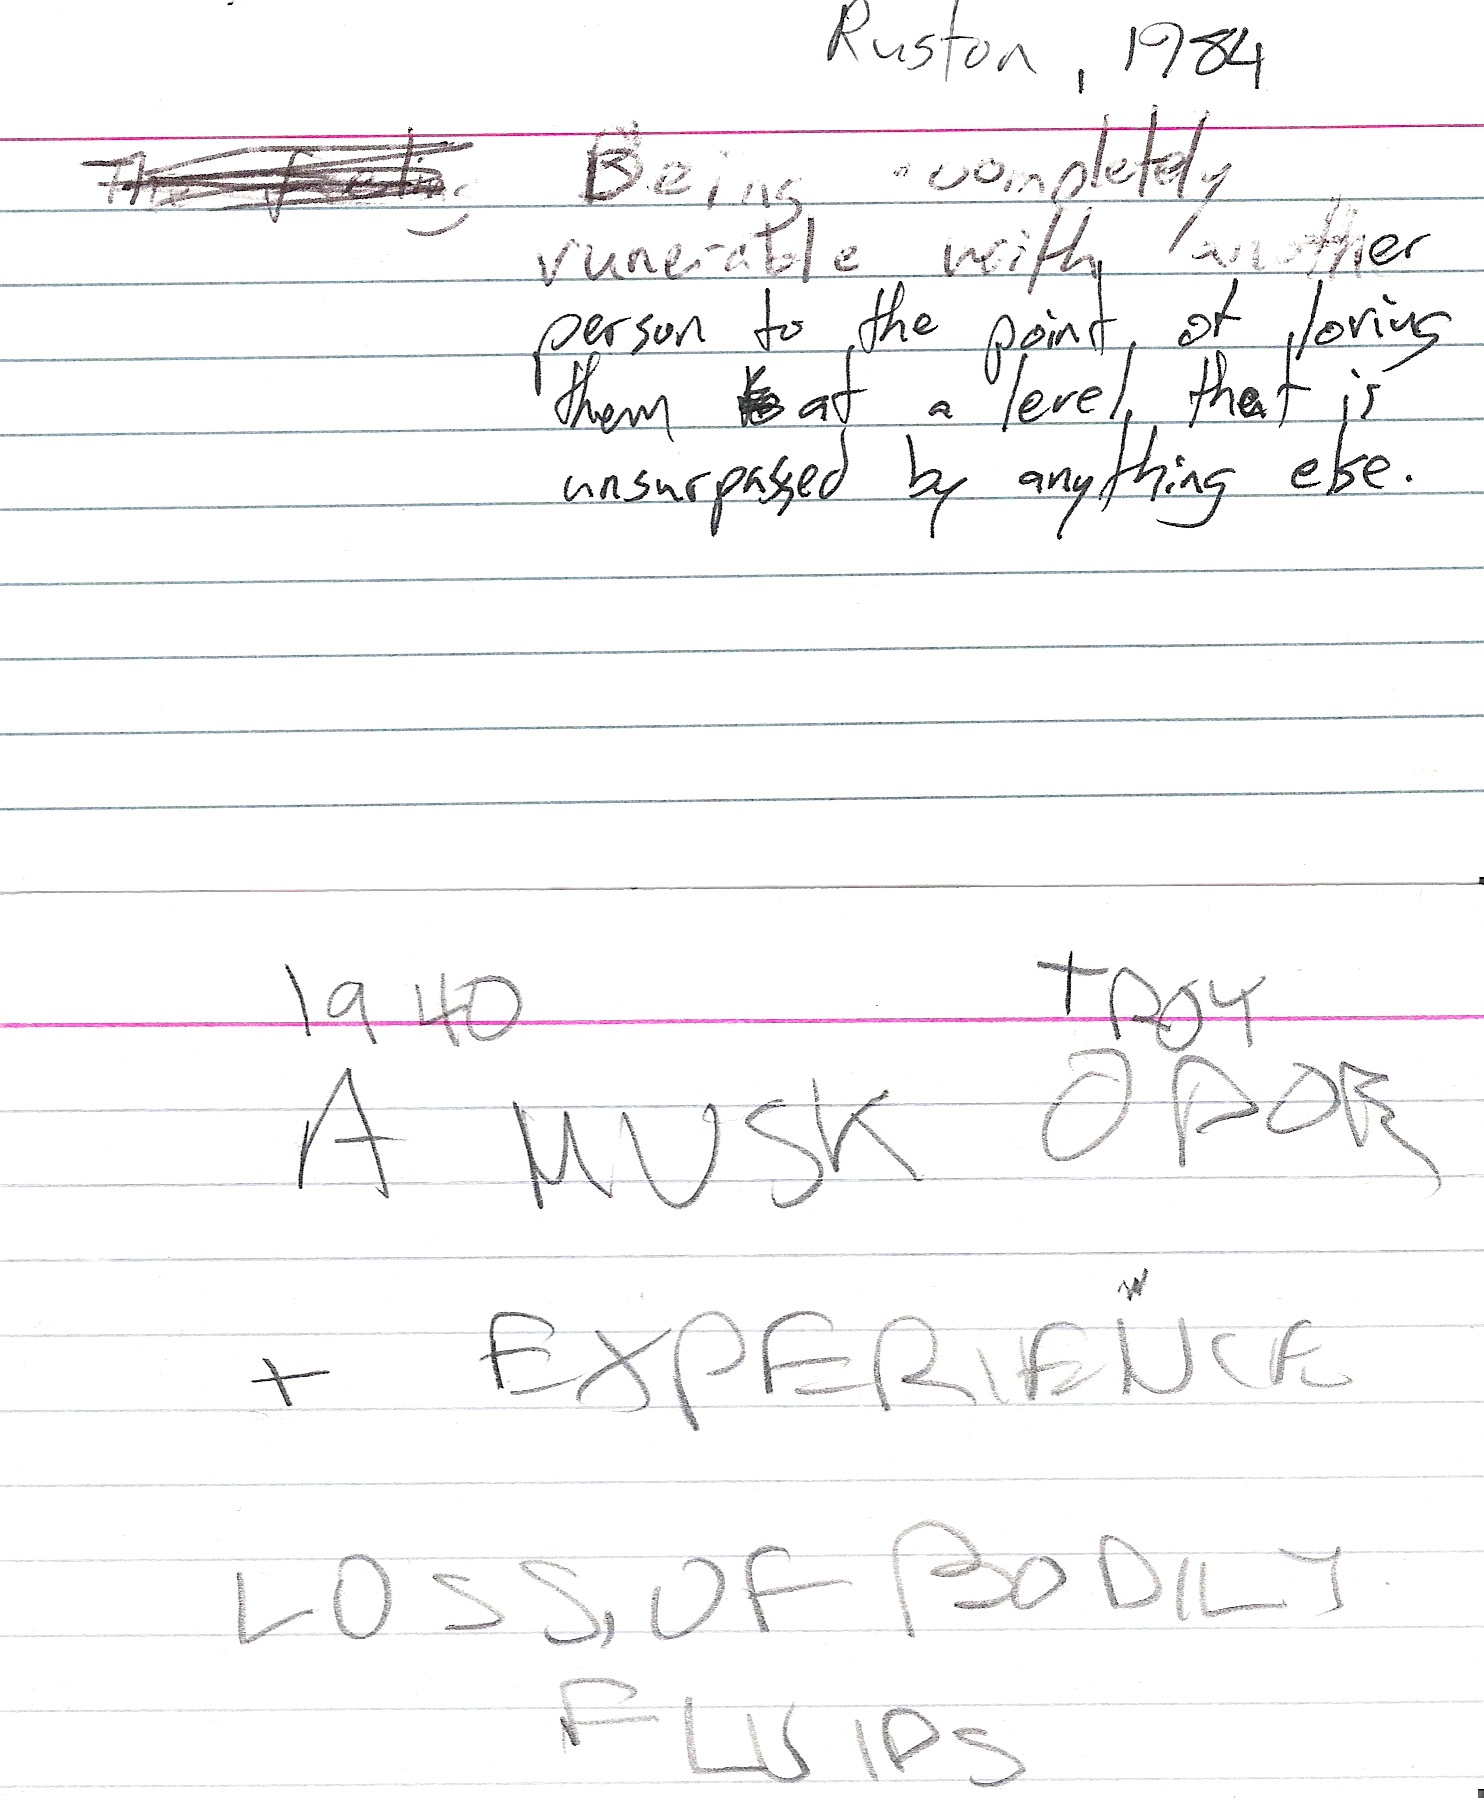 Ruston, 1984
The feeling Being completely
vunerable with another
person to the point of loving
them at a level that is
unsurpassed by anything else.
1940 TROY
A MUSK ODOR
+ EXPERIENCE
LOSS, OF BODILY
FLUIDS